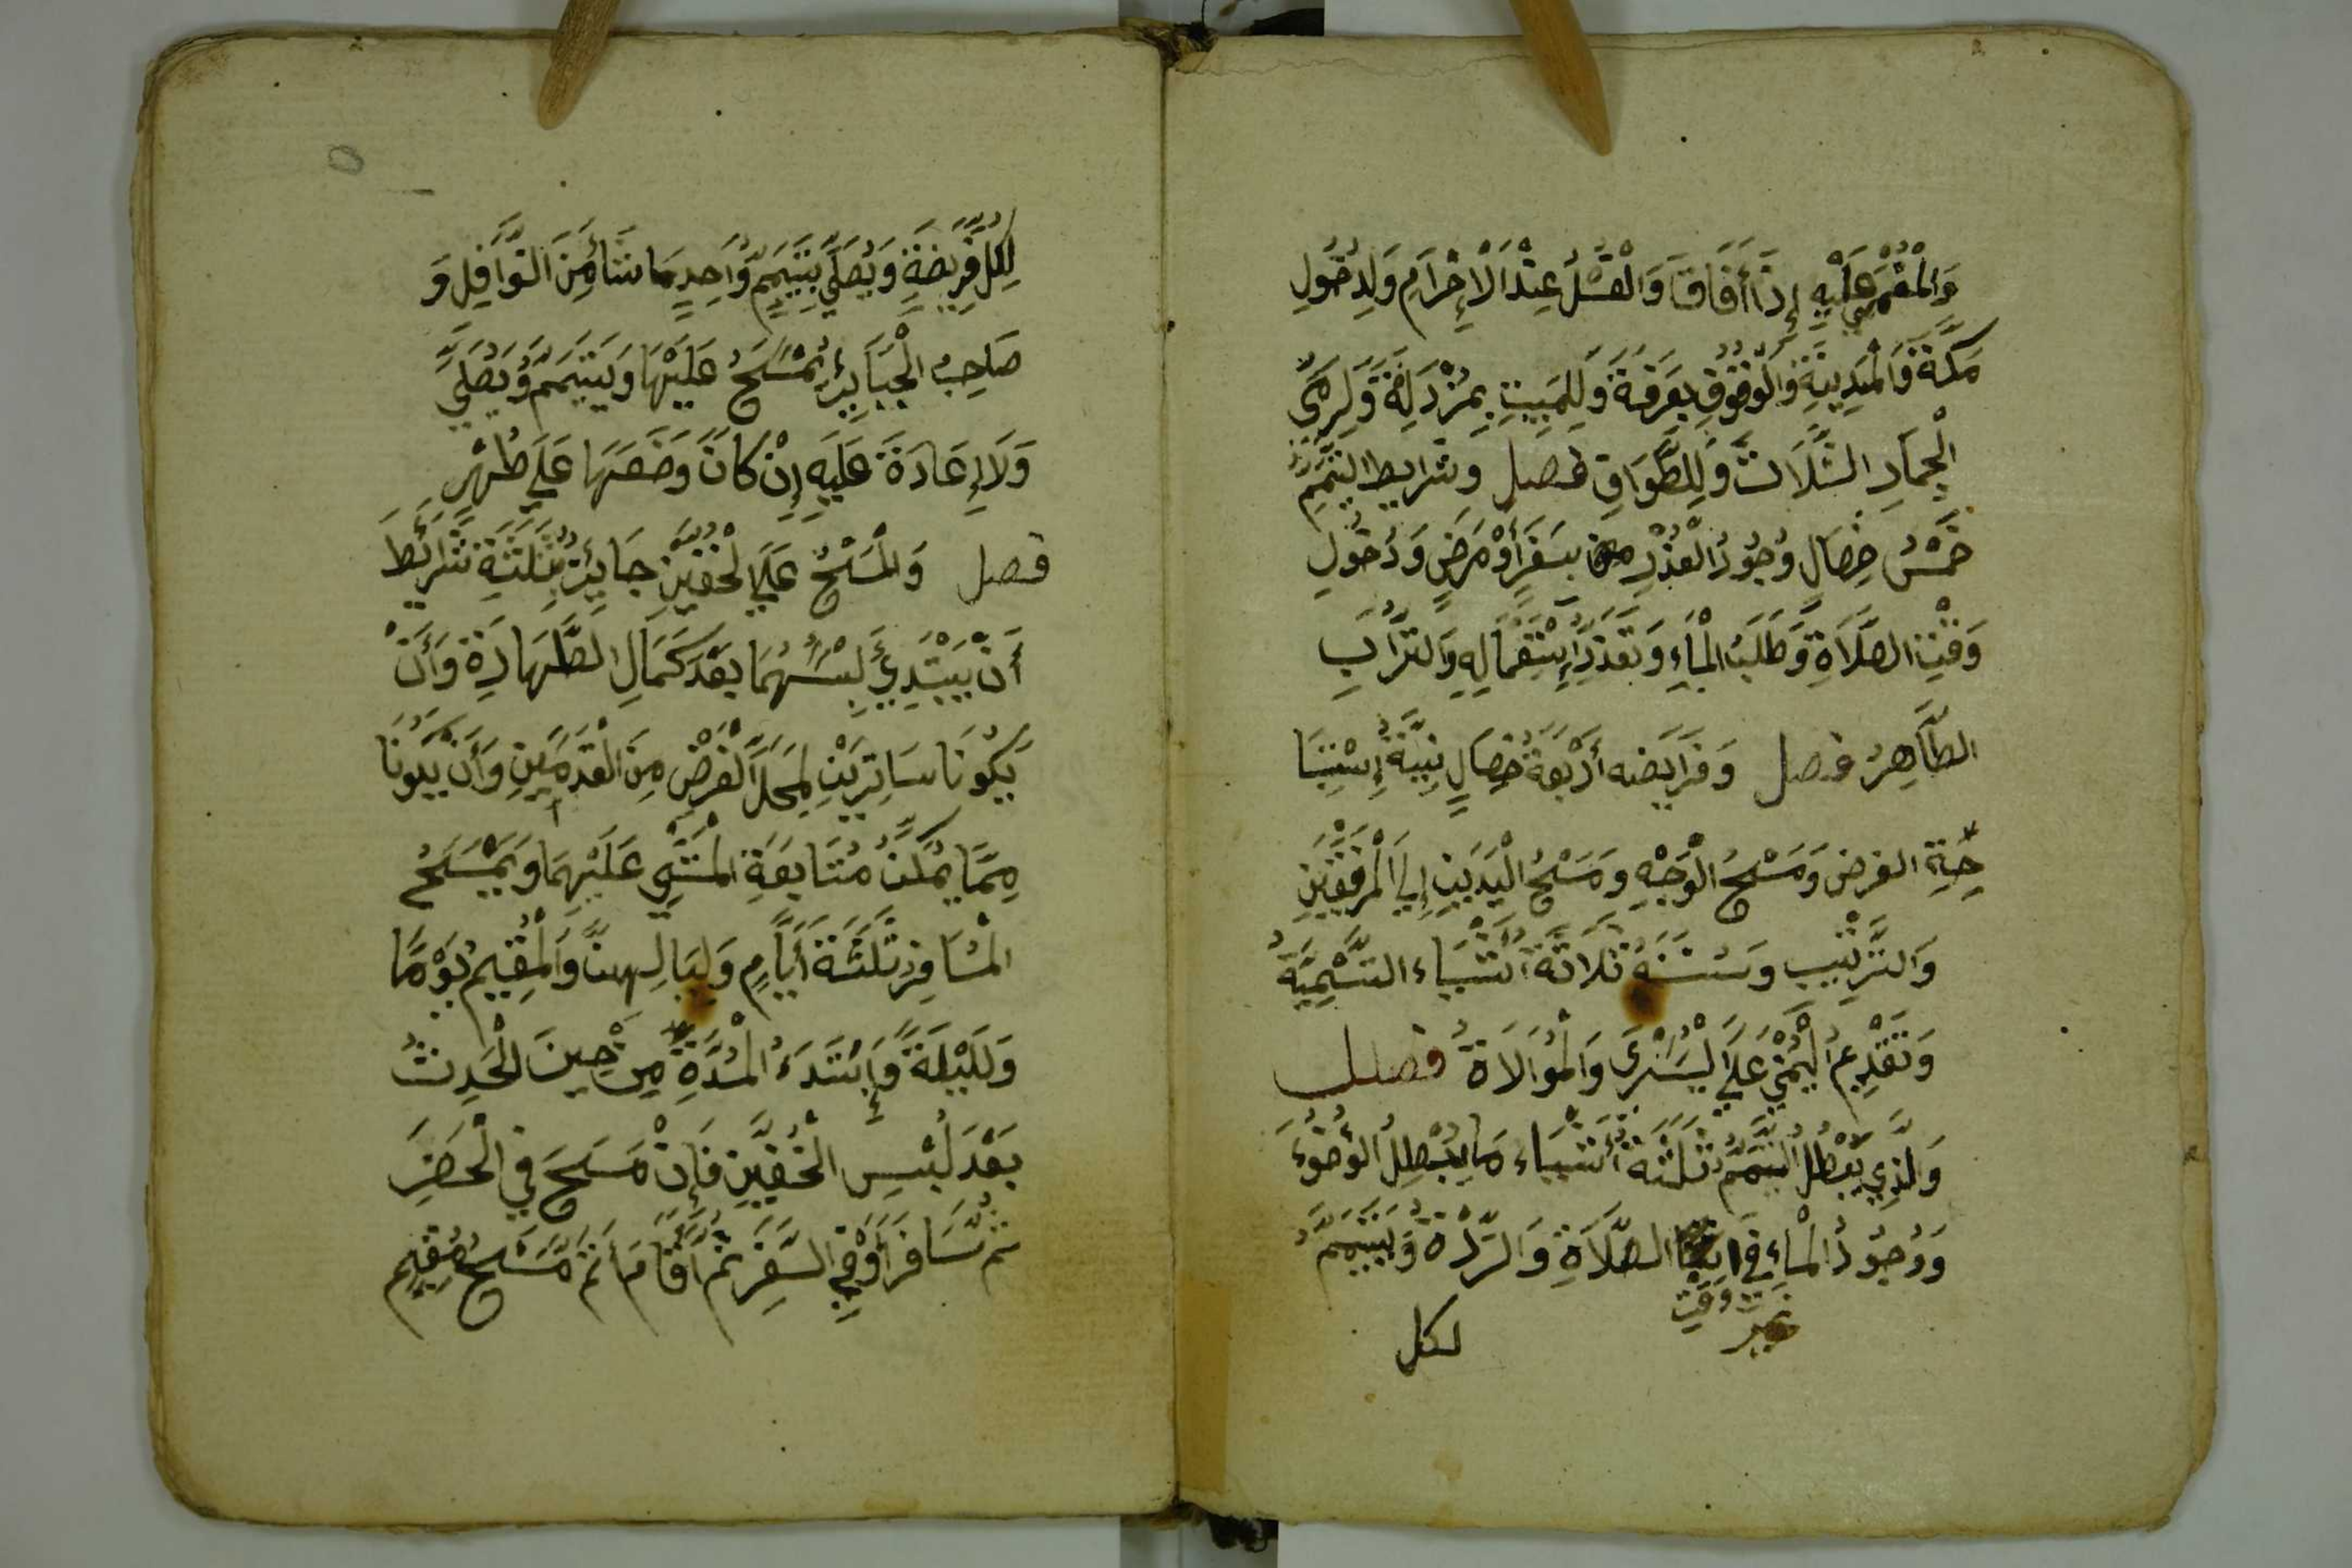 وَالْمُغْمَى عَلَيْهِ إِذَا أَفَاقَا وَالْغُسْلُ عِنْدَ الْإِحْرَامِ وَلِدُخُولِ
مَكَّةَ وَالْمَدِينَةِ وَالْوُقُوفِ بِعَرَفَةَ وَلِلْمَبِيتِ بِمُزْدَلِفَةَ وَلِرَمْيِ
الْجِمَارِ الثَّلَاثِ وَلِلطَّوَافِ فصل وشرايط التَّيَمُّمِ
خَمْسُ خِصَالٍ وُجُودُ الْعُذْرِ بِسَفَرٍ أَوْ مَرَضٍ وَدُخُولِ
وَقْتِ الصَّلَاةِ وَطَلَبُ الْمَاءِ وَتَعَذُّرُ اسْتِعْمَالِهِ وَالتُّرَابِ
الطَّاهِرُ فصل وَفَرَايضه أَرْبَعَةُ خِصَالٍ نِيَّةُ إِسْتِبَا
حَةِ الفرض وَمَسْحُ الْوَجْهِ وَمَسْحُ الْيَدَيْنِ إِلَى الْمِرْفَقَيْنِ
وَالتَّرْتِيب وسننه ثَلَاثَةُ أَشْيَاء التَّسْمِيَةُ
وَتَقْدِيمُ الْيُمْنَى عَلَى الْيُسْرَى وَالْمُوَالَاةُ فصل
وَالَّذِي يُبْطِلُ التَّيَمُّمَ ثَلَثَةُ أَشْيَاء مَا يُبْطِلُ الْوُضُوءَ
وَوُجُودُ الْمَاءِ فِي الصَّلَاةِ وَالرِّدَّةُ وَيَتَيَمَّمُ
غير وقت
لكل
لِكُلِّ فَرِيضَةٍ وَيُصَلِّي بِتَيَمُّمٍ وَاحِدٍ مَا شَاءَ مِنَ النَّوَافِلِ وَ
صَاحِبُ الْجَبَايِرِ يَمْسَحُ عَلَيْهَا وَيَتَيَمَّمُ وَيُصَلِّي
وَلَا إِعَادَةَ عَلَيْهِ إِنْ كَانَ وَضَعَهَا عَلَى طُهْرٍ
فصل وَالْمَسْحُ عَلَى الْخُفَّيْنِ جَايِزٌ بِثَلَثَةِ شَرَايِطَ
أَنْ يَبْتَدِئَ لُبْسَهُمَا بَعْدَ كَمَالِ الطَّهَارَةِ وَأَنْ
يَكُونَا سَاتِرَيْنِ لِمَحَلِّ الْفَرْضِ مِنَ الْقَدَمَيْنِ وَأَنْ يَكُونَا
مِمَّا يُمْكِنُ مُتَابَعَةَ الْمَشْيِ عَلَيْهِمَا وَيَمْسَحُ
الْمُسَافِرُ ثَلَثَةَ أَيَّامٍ وَلِيَالِهِنَّ وَالْمُقِيمُ يَوْمًا
وَلَيْلَةً وَإِبْتَدَءُ الْمُدَّةِ مِنْ حِينَ الْحَدِثُ
بَعْدَ لُبْسِ الْخُفَّيْنِ فَإِنْ مَسَحَ فِي الْحَضَرِ
ثم سَافَرَ أَوْ فِي السَّفَرِ ثُمَّ أَقَامَ اتَمَّ مَسْحَ مُقِيمٍ